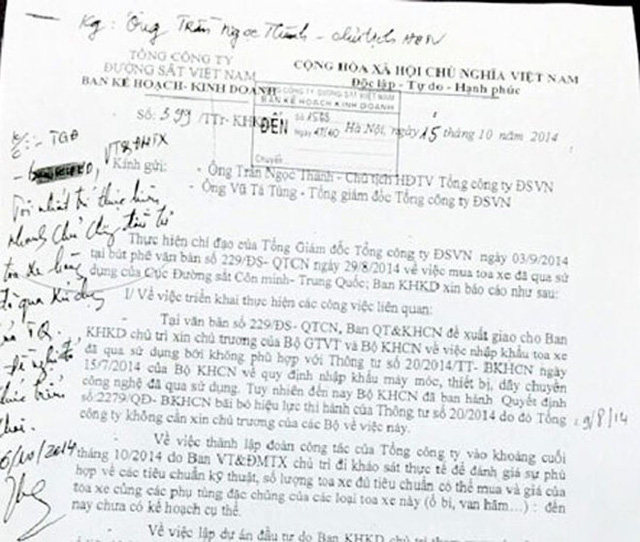 Kg: Ông Trần Ngọc Thành - chủ tịch HĐTV
TỔNG CÔNG TY
ĐƯỜNG SẮT VIỆT NAM
BAN KẾ HOẠCH- KINH DOANH
CỘNG HÒA XÃ HỘI CHỦ NGHĨA VIỆT NAM
Độc lập - Tự do - Hạnh phúc
TỔNG CÔNG TY ĐƯỜNG SẮT VIỆT NAM
BAN KẾ HOẠCH KINH DOANH
ĐẾN
Số
Ngày
Chuyển
Số: 399/TTr- KHKD
Hà Nội, ngày 15 tháng 10 năm 2014
K/c: - TGĐ
VT&ĐMTX
Tôi nhất trí thực hiện
nhanh chủ đầu tư
toa xe hàng
đã qua sử dụng
của TQ.
Đề nghị
16/10/2014
Kính gửi:
- Ông Trần Ngọc Thành - Chủ tịch HĐTV Tổng công ty ĐSVN
- Ông Vũ Tá Tùng - Tổng giám đốc Tổng công ty ĐSVN
Thực hiện chỉ đạo của Tổng Giám đốc Tổng công ty ĐSVN ngày 03/9/2014
tại bút phê văn bản số 229/ĐS- QTCN ngày 29/8/2014 về việc mua toa xe đã qua sử
dụng của Cục Đường sắt Côn minh- Trung Quốc; Ban KHKD xin báo cáo như sau:
I/ Về việc triển khai thực hiện các công việc liên quan:
Tại văn bản số 229/ĐS- QTCN, Ban QT&KHCN đề xuất giao cho Ban
KHKD chủ trì xin chủ trương của Bộ GTVT và Bộ KHCN về việc nhập khẩu toa xe
đã qua sử dụng bởi không phù hợp với Thông tư số 20/2014/TT- BKHCN ngày
15/7/2014 của Bộ KHCN về quy định nhập khẩu máy móc, thiết bị, dây chuyền
công nghệ đã qua sử dụng. Tuy nhiên đến nay Bộ KHCN đã ban hành Quyết định
số:2279/QĐ- BKHCN bãi bỏ hiệu lực thi hành của Thông tư số 20/2014 do đó Tổng
công ty không cần xin chủ trương của các Bộ về việc này.
9/8/14
Về việc thành lập đoàn công tác của Tổng công ty vào khoảng cuối
tháng 10/2014 do Ban VT&ĐMTX chủ trì đi khảo sát thực tế để đánh giá sự phù
hợp về các tiêu chuẩn kỹ thuật, số lượng toa xe đủ tiêu chuẩn có thể mua và giá của
toa xe cũng các phụ tùng đặc chủng của các loại toa xe này (ổ bi, van hãm…) : đến
nay chưa có kế hoạch cụ thể.
Về việc lập dự án đầu tư do Ban KHKD chủ trì